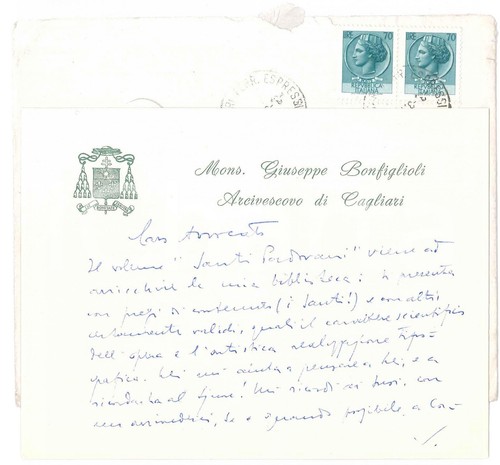 70
70
ESPRESSI
Mons. Giuseppe Bonfiglioli
Arcivescovo di Cagliari
Caro Avvocato
Il volume "Santi Padovani" viene ad
arricchire la mia biblioteca: si presenta
con pregi di contenuto (i Santi!) e con altri
certamente validi, quali il carattere scientifico
dell'opera e l'artistica realizzazione tipo-
grafica. Lei mi aiuta a pensare a Lei, e a
ricordarla al Signore! Mi ricordi ai suoi, con
un arrivederci, se e quando possibile, a Ca-